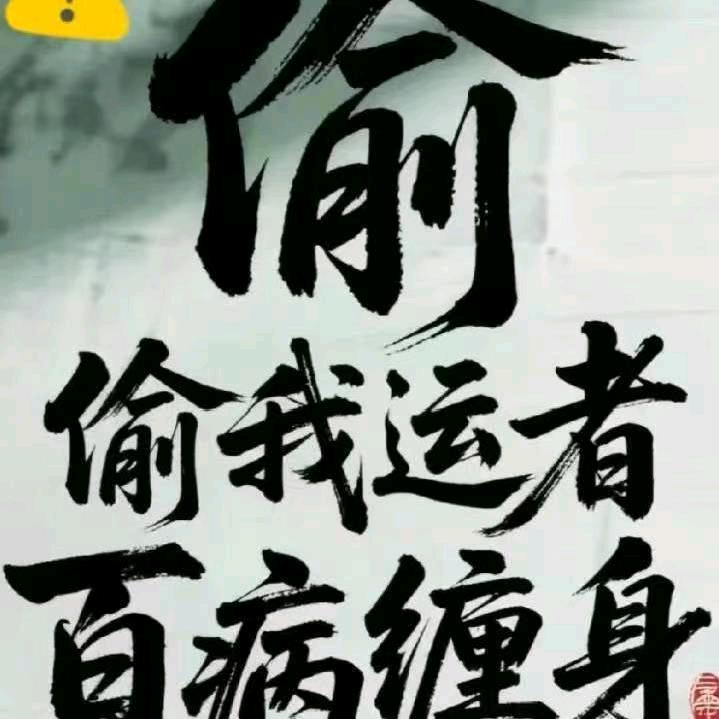 偷
偷我运者
百病缠身